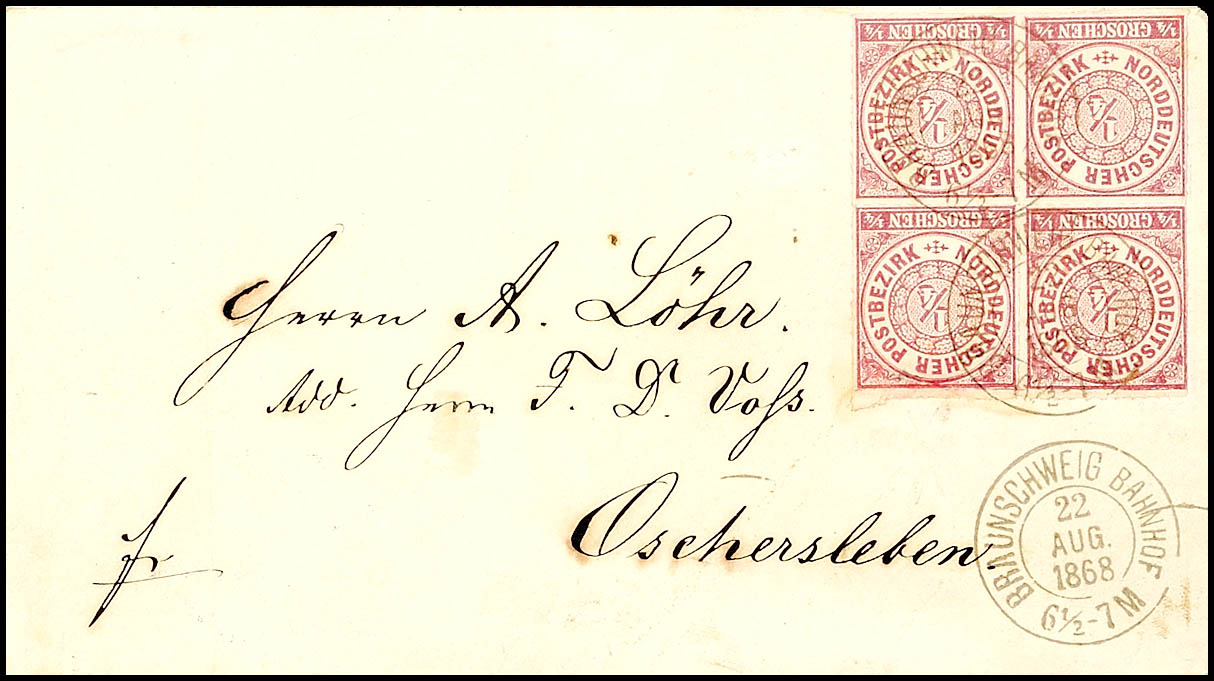 ¼ GROSCHEN ¼
NORDDEUTSCHER POSTBEZIRK
¼
¼ GROSCHEN ¼
NORDDEUTSCHER POSTBEZIRK
¼
¼ GROSCHEN ¼
NORDDEUTSCHER POSTBEZIRK
¼
¼ GROSCHEN ¼
NORDDEUTSCHER POSTBEZIRK
¼
Herrn A. Löhr.
Add. Herrn F. D. Voss.
Oschersleben.
fr
BRAUNSCHWEIG BAHNHOF
22
AUG.
1868
6½-7 M